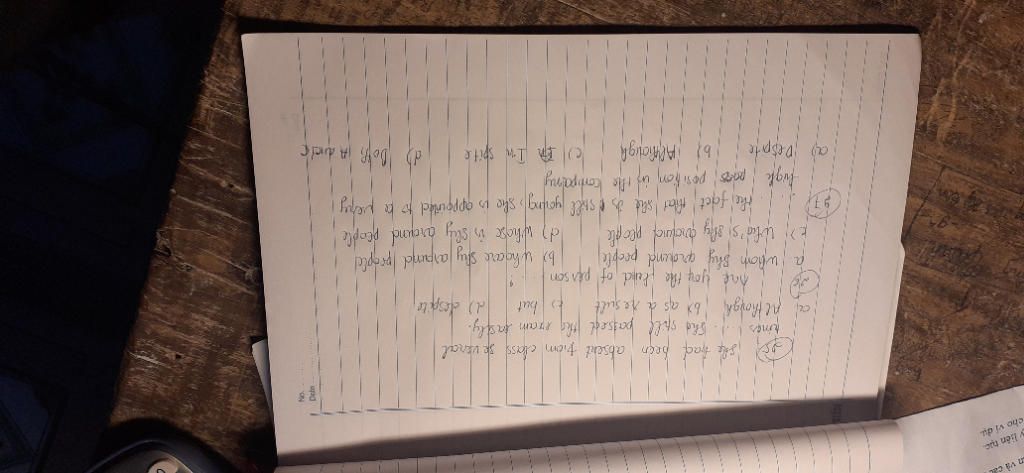 No.
Date
25 She had been absent from class several
times .... She still passed the exam easily.
a, Although b, as a result c) but d) despite
26 Are you the kind of person .....?
a whom shy around people b) whoare shy around people
c) Who's shy around people d) whose is shy around people
27 ....... the fact that she is still young, she is appointed to a very
high position in the company
a) Despite b) Although c) In spite d) Both A and C
cho ví dụ.
liên tục.
và các